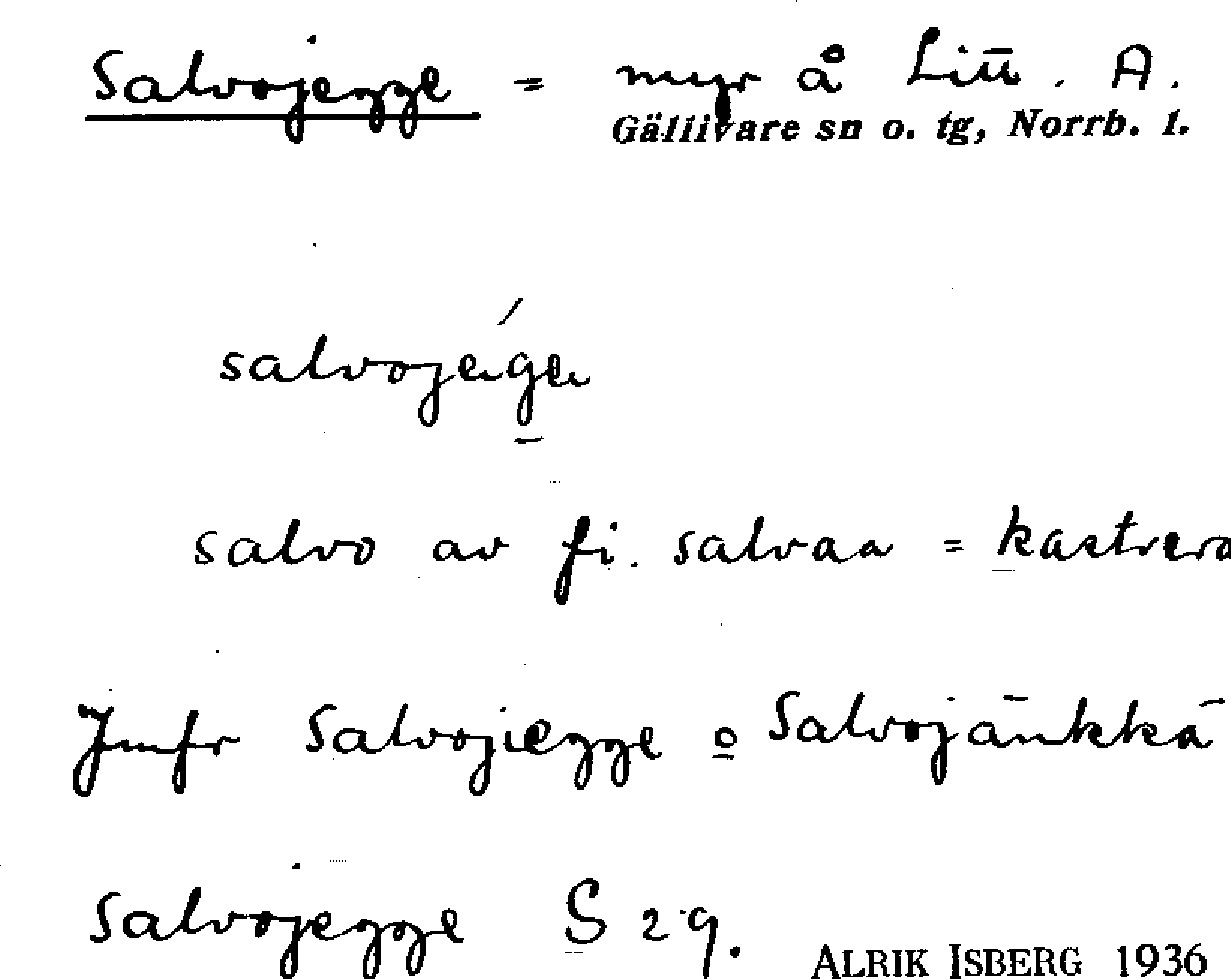 Salvojegge = myr å Litt. A.
Gällivare sn o. tg, Norrb. l.
salvojeǵe
salvo av fi. salvaa = kastrera
Jmfr Salvojiegge o Salvojänkkä
Salvojegge S 29.
ALRIK ISBERG 1936